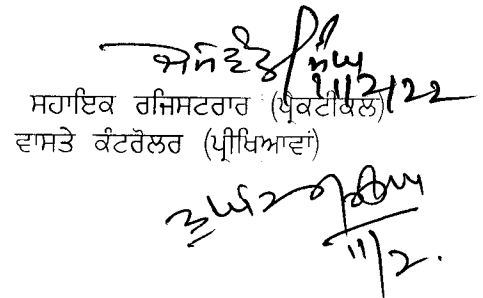 ਜਸਵੰਤ ਸਿੰਘ
11/2/22
ਸਹਾਇਕ ਰਜਿਸਟਰਾਰ (ਪ੍ਰੈਕਟੀਕਲ)
ਵਾਸਤੇ ਕੰਟਰੋਲਰ (ਪ੍ਰੀਖਿਆਵਾਂ)
11/2.